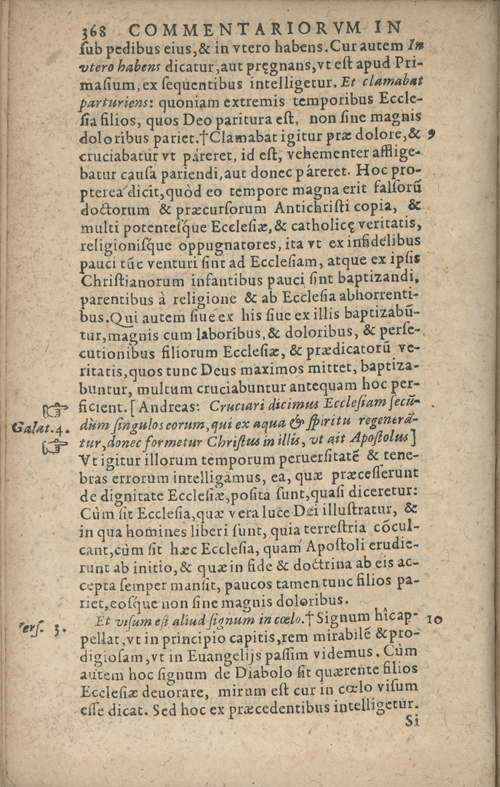 368 COMMENTARIORVM IN
sub pedibus eius, & in vtero habens. Cur autem In
vtero habens dicatur, aut pręgnans, vt est apud Pri-
masium, ex sequentibus intelligetur. Et clamabat
parturiens: quoniam extremis temporibus Eccle-
sia filios, quos Deo paritura est, non sine magnis
doloribus pariet. † Clamabat igitur præ dolore, & 9
cruciabatur vt páreret, id est, vehementer afflige-
batur causa pariendi, aut donec páreret. Hoc pro-
pterea dicit, quòd eo tempore magna erit falsorũ
doctorum & præcursorum Antichristi copia, &
multi potentesque Ecclesiæ, & catholicę veritatis,
religionisque oppugnatores, ita vt ex infidelibus
pauci tũc venturi sint ad Ecclesiam, atque ex ipsis
Christianorum infantibus pauci sint baptizandi,
parentibus à religione & ab Ecclesia abhorrenti-
bus. Qui autem siue ex his siue ex illis baptizabũ-
tur, magnis cum laboribus, & doloribus, & perse-
cutionibus filiorum Ecclesiæ, & prædicatorũ ve-
ritatis, quos tunc Deus maximos mittet, baptiza-
buntur, multum cruciabuntur antequam hoc per-
☞ ficient. [Andreas: Cruciari dicimus Ecclesiam secũ-
Galat. 4. dùm singulos eorum, qui ex aqua & spiritu regenerã-
☞ tur, donec formetur Christus in illis, vt ait Apostolus]
Vt igitur illorum temporum peruersitatẽ & tene-
bras errorum intelligamus, ea, quæ præcesserunt
de dignitate Ecclesiæ, posita sunt, quasi diceretur:
Cùm sit Ecclesia, quæ vera luce Dei illustratur, &
in qua homines liberi sunt, quia terrestria cõcul-
cant, cùm sit hæc Ecclesia, quam Apostoli erudie-
runt ab initio, & quæ in fide & doctrina ab eis ac-
cepta semper mansit, paucos tamen tunc filios pa-
riet, eosque non sine magnis doloribus.
Vers. 3. Et visum est aliud signum in cœlo. † Signum hîc ap- 10
pellat, vt in principio capitis, rem mirabilẽ & pro-
digiosam, vt in Euangelijs passim videmus. Cùm
autem hoc signum de Diabolo sit quærente filios
Ecclesiæ deuorare, mirum est cur in cœlo visum
esse dicat. Sed hoc ex præcedentibus intelligetur.
Si